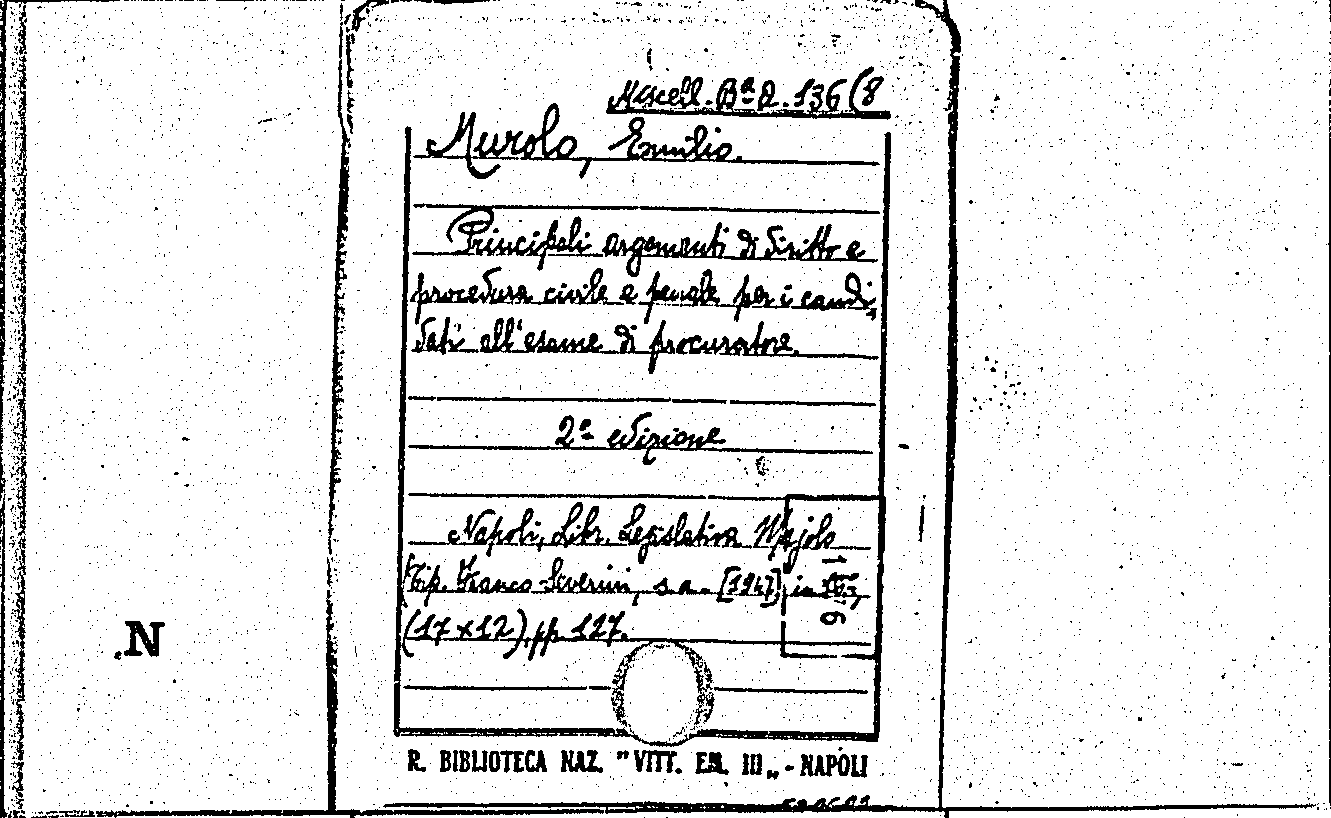 Miscell. Bª Q. 136 (8
Murolo, Emilio.
Principali argomenti di diritto e
procedura civile e penale per i candi,
dati all'esame di procuratore.
2ª edizione
Napoli, Libr. Legislativa Majolo
(Tip. Franco Severini, s. a. - [1947], in
(17 x 12), pp. 127.
N
R. BIBLIOTECA NAZ. "VITT. EM. III„ - NAPOLI